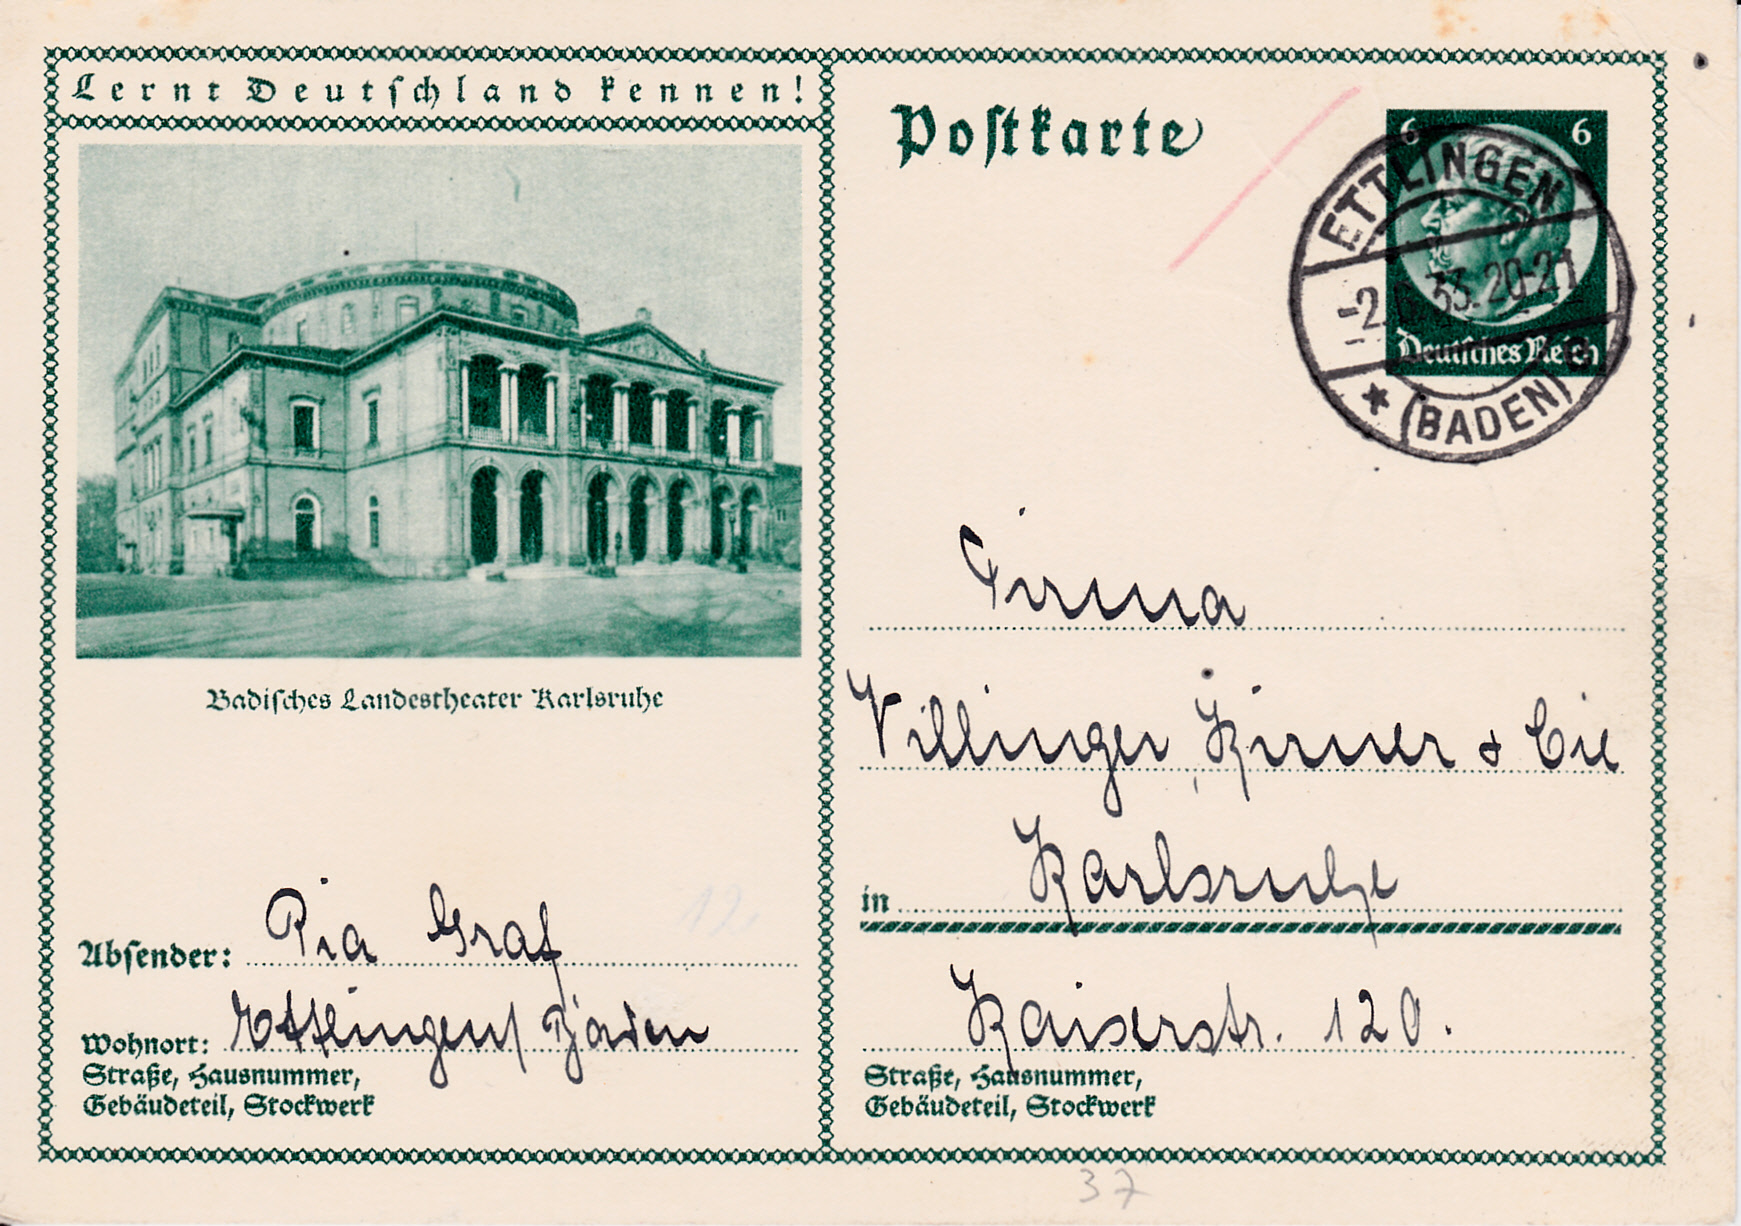 Lernt Deutschland kennen!
Badisches Landestheater Karlsruhe
Absender: Pia Graf
Wohnort: Ettlingen/Baden
Straße, Hausnummer,
Gebäudeteil, Stockwerk
12.
Postkarte
6 6
Deutsches Reich
ETTLINGEN
-2. 6. 33. 20-21
(BADEN)
Firma
Villinger, Kirner & Cie
in Karlsruhe
Kaiserstr. 120.
Straße, Hausnummer,
Gebäudeteil, Stockwerk
37